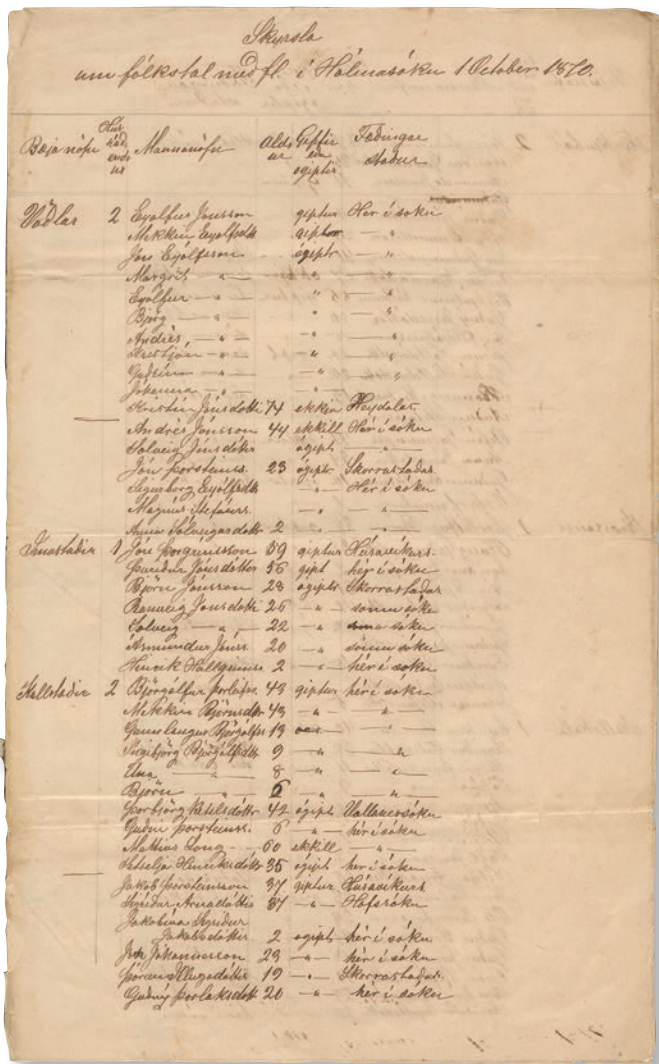 Skyrsla
um fólkstal med fl. í Hólmasókn 1 October 1870.
Bæja nöfn Hús ráð ends ur Mannanöfn Alds ur Giptir eða ógiptir Fæðingar staður
Vöðlar 2 Eyólfur Jónsson giptur Hér í sókn
Mekkin Eyólfsdttr giptur — " —
Jón Eyólfsson ógiptr — "
Margrét — " — " — "
Eyólfur — " — " — "
Björg — " — " — "
Andrés, — " — " — "
Kristján — " — " — "
Guðrún — " — " — "
Jóhanna — " — — " —
Kristín Jónsdottir 74 ekkia Heydalas
Andrés Jónsson 44 ekkill Hér í sókn
Solveig Jónsdóttir ógipt — " —
Jón Þorsteinss. 23 ógiptr Skorrastaðas
Sigurborg Eyólfsdttr — " — Hér í sókn
Magnús Stefánss. — " — — " —
Anna Sólveigardottr 2 — " — — " —
1 Jón Þorgrimsson 59 giptur Húsavíkurs.
Þuríður Jónsdotter 56 gipt hér í sókn
Björn Jónsson 28 ógiptr Skorrastaðas
Rannveig Jónsdotti 26 — " — sömu sókn
Solveig — " — 22 — " — sókn
Ásmundur Jónss. 20 — " — sömu sókn
Hinrik Hallgrimss. 2 — " — hér í sókn
Kallstadir 2 Björgólfur Þorlákss. 43 giptur hér í sókn
Mekkin Björnsdttr 43 — " — "
Gunnlaugur Björgólfss 13 — " —
Sigbjörg Björgólfsdttr 9 — " — "
Una — " — 8 — " — "
Björn — " — 6 — " — "
Þorbjörg Ketilsdóttr 42 ógipt Vallanessókn
Guðni Þorsteinss. 6 — " — hér í sókn
Mattías Long — 60 ekkill — " —
Setselja Hinriksdóttr 35 ógipt her í sókn
Jakob Þorsteinsson 37 giptur Húsavíkurs
Sigriður Arnadóttir 37 — " — Hofssókn
Jakobína Sigríður
Jakobsdóttir 2 ógipt hér í sókn
Jón Jóhannesson 23 — " — hér í sókn
Þórunn 19 — " — Skorrastaðas.
Guðný Þorlaksdott 20 — " — hér í sókn